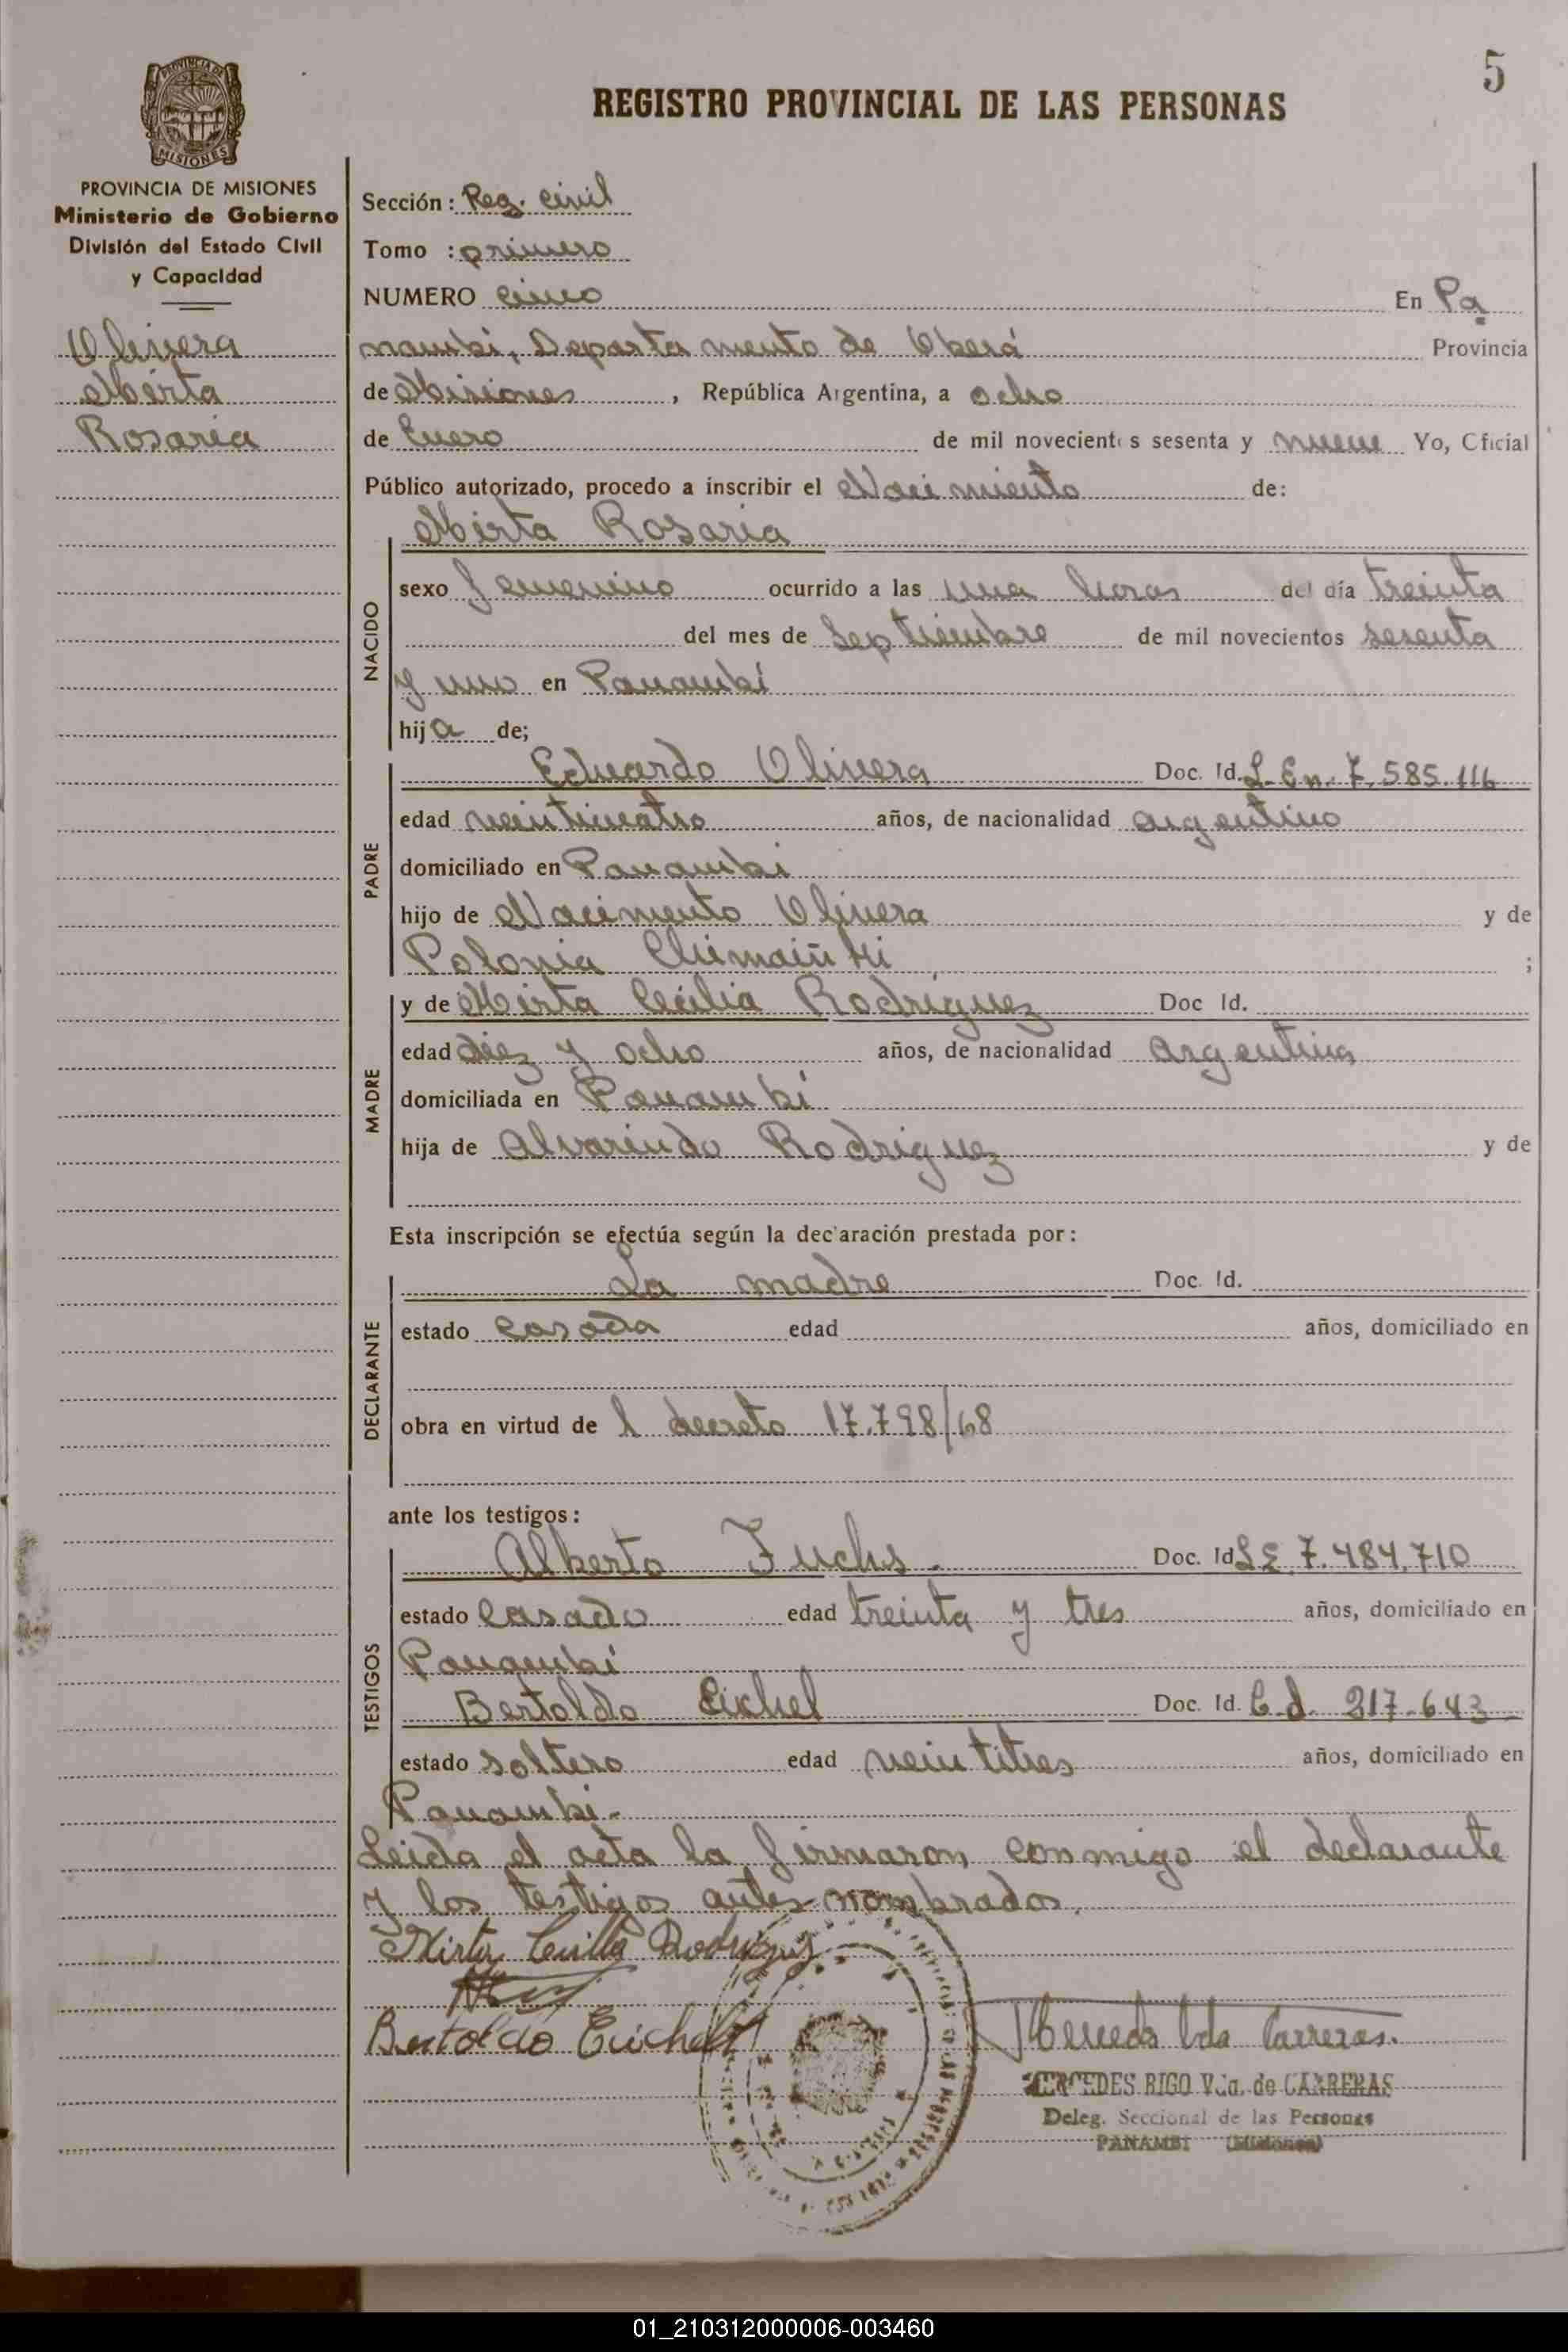 5
REGISTRO PROVINCIAL DE LAS PERSONAS
PROVINCIA DE MISIONES
PROVINCIA DE MISIONES
Ministerio de Gobierno
División del Estado Civil
y Capacidad
Olivera
Mirta
Rosaria
Sección: Reg. Civil
Tomo : primero
NUMERO cinco En Pa
nambi, Departamento de Oberá Provincia
de Misiones, República Argentina, a ocho
de Enero de mil novecientos sesenta y nueve Yo, Oficial
Público autorizado, procedo a inscribir el Nacimiento de:
NACIDO
Mirta Rosaria
sexo femenino ocurrido a las una horas del día treinta
del mes de Septiembre de mil novecientos sesenta
y uno en Panambí
hija de;
PADRE
Eduardo Olivera Doc. Id. L. En. 7.585.116
edad veinticuatro años, de nacionalidad argentino
domiciliado en Panambi
hijo de Nacimento Olivera y de
Polonia ;
MADRE
y de Mirta Cecilia Rodriguez Doc Id.
edad diez y ocho años, de nacionalidad Argentina
domiciliada en Panambi
hija de Alvarindo Rodriguez y de
Esta inscripción se efectúa según la declaración prestada por:
DECLARANTE
La madre Doc. Id.
estado casada edad años, domiciliado en
obra en virtud de l decreto 17.798/68
ante los testigos:
TESTIGOS
Alberto Fuchs - Doc. Id L E 7.484.710
estado casado edad treinta y tres años, domiciliado en
Panambi
Bertoldo Eichel Doc. Id. C. d. 217-643-
estado soltero edad veintitres años, domiciliado en
Panambi-
Leida el acta la firmaron conmigo el declarante
y los testigos antes nombrados.
Mirta Cecilia Rodriguez
Bertoldo
Mercedes Vda Carreras.
MERCEDES RIGO Vda. de CARRERAS
Deleg. Seccional de las Personas
PANAMBI (Misiones)
01_210312000006-003460